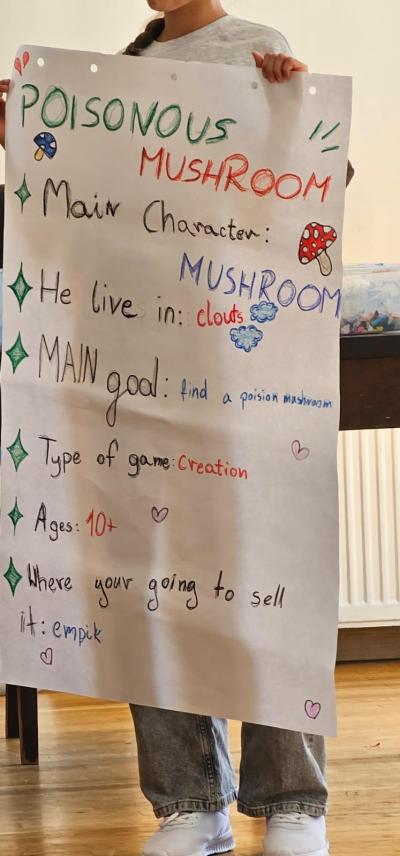 POISONOUS
MUSHROOM
Main Character:
MUSHROOM
He live in: clouts
MAIN goal: find a poision mushroom
Type of game: Creation
Ages: 10+
Where your going to sell
it: empik